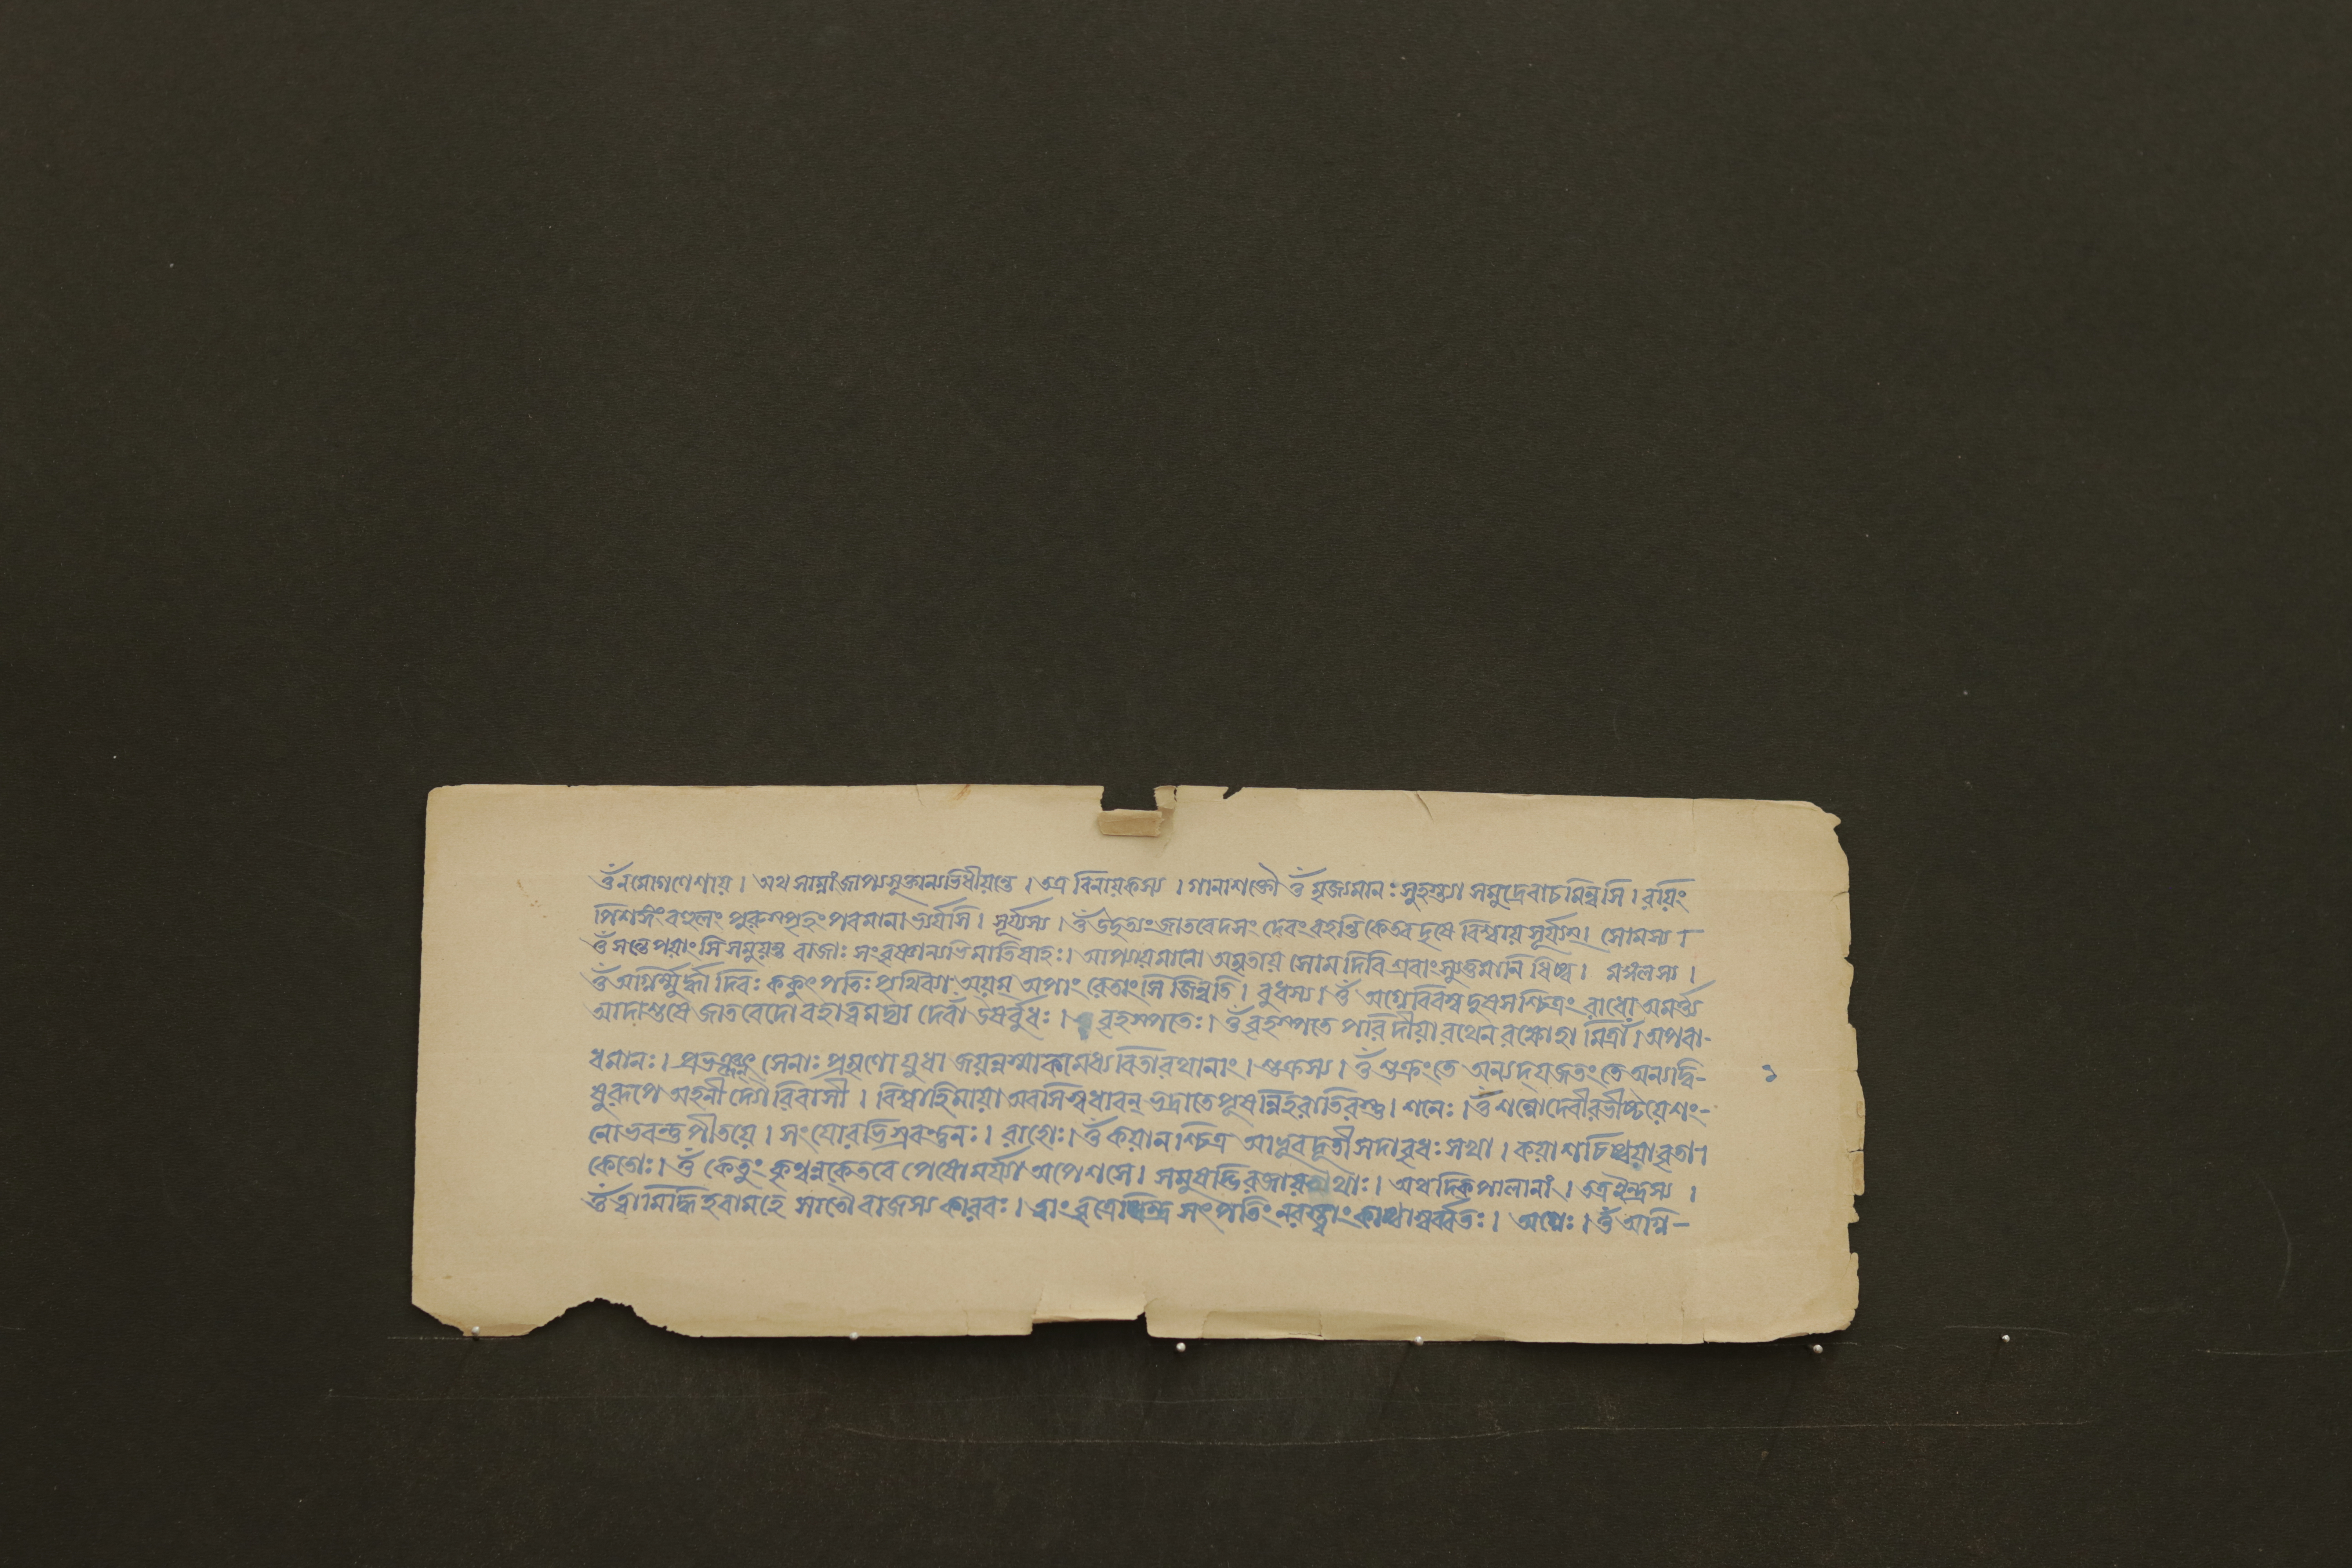 ওঁ নমোগণেশায় । অথ সাম্নাং জাপ্যসূক্তান্যভিধীয়ন্তে । তত্র বিনায়কস্য । গানাশক্তৌ ওঁ মৃজ্যমানঃ সুহস্ত্যা সমুদ্রেবাচমিন্বসি । রয়িং
পিশঙ্গং বহুলং পুরুস্পৃহং পবমানা ভ্যর্ষসি । সূর্য্যস্য । ওঁ উদুত্যং জাতবেদসং দেবং বহন্তি কেতব দৃষে বিশ্বায় সূর্য্যম্ । সোমস্য ।
ওঁ সন্তে পয়াংসি সমুয়ন্তু বাজাঃ সংবৃষ্ণ্যান্যভিমাতিষাহঃ । আপ্যায়মানো অমৃতায় সোম দিবি শ্রবাংস্যুত্তমানি ধিষ্ব । মঙ্গলস্য ।
ওঁ অগ্নির্ম্মূর্দ্ধা দিবঃ ককুৎ পতিঃ পৃথিব্যা অয়ম্ অপাং রেতাংসি জিন্বতি । বুধস্য । ওঁ অগ্নে বিবস্ব দুষসশ্চিত্রং রাধো অমর্ত্ত্য
আদাশুষে জাতবেদো বহাত্বমদ্যা দেবাঁ উষর্বুধঃ । বৃহস্পতেঃ । ওঁ বৃহস্পতে পরি দীয়া রথেন রক্ষোহা মিত্রাঁ । অপবা-
ধমানঃ । প্রভঞ্জন্ৎ সেনাঃ প্রমৃণো যুধা জয়ন্নস্মাকমেধ্য বিতা রথানাং । শুক্রস্য । ওঁ শুক্রং তে অন্যদ্ যজতং তে অন্যদ্বি-
ষুরূপে অহনী দ্যৌরিবাসী । বিশ্বাহিমায়া অবসি স্বধাবন্ ভদ্রাতে পূষন্নিহরাতিরস্তু । শনেঃ । ওঁ শন্নোদেবীরভীষ্টয়েশং-
নোভবন্তু পীতয়ে । সংযোরভিস্রবন্তুনঃ । রাহোঃ । ওঁ কয়ান শ্চিত্র আভুব দূতী সদাবৃধঃ সখা । কয়া শচিষ্ঠয়া বৃতা ।
কেতোঃ । ওঁ কেতুং কৃণ্বন্নকেতবে পেষো মর্য্যা অপেশসে । সমুষদ্ভিরজায়থাঃ । অথ দিক্পালানাং । তত্র ইন্দ্রস্য ।
ওঁ ত্বামিদ্ধি হবামহে সাতৌ বাজস্য কারবঃ । ত্বাং বৃত্রেষ্বিন্দ্র সৎপতিং নরস্ত্বাং কাষ্ঠাস্বর্ব্বতঃ । অগ্নেঃ । ওঁ অগ্নি-
১